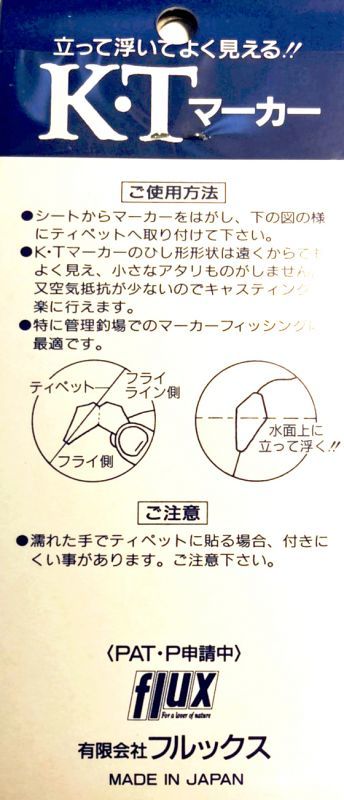 立って浮いてよく見える!!
K・Tマーカー
ご使用方法
●シートからマーカーをはがし、下の図の様
にティペットへ取り付けて下さい。
●K・Tマーカーのひし形形状は遠くからでも
よく見え、小さなアタリものがしません。
又空気抵抗が少ないのでキャスティング
楽に行えます。
●特に管理釣場でのマーカーフィッシングに
最適です。
ティペット
フライ
ライン側
フライ側
水面上に
立って浮く!!
ご注意
●濡れた手でティペットに貼る場合、付きに
くい事があります。ご注意下さい。
〈PAT・P申請中〉
flux
For a lover of nature
有限会社フルックス
MADE IN JAPAN